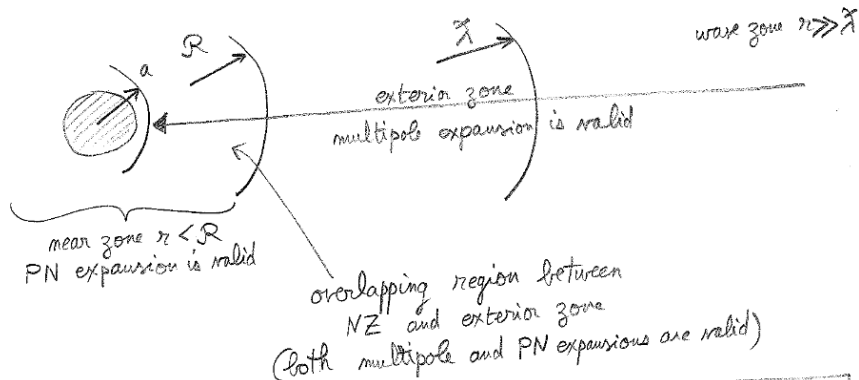 a
R
ƛ
wave zone r ≫ ƛ
exterior zone
multipole expansion is valid
near zone r < R
PN expansion is valid
overlapping region between
NZ and exterior zone
(both multipole and PN expansions are valid)